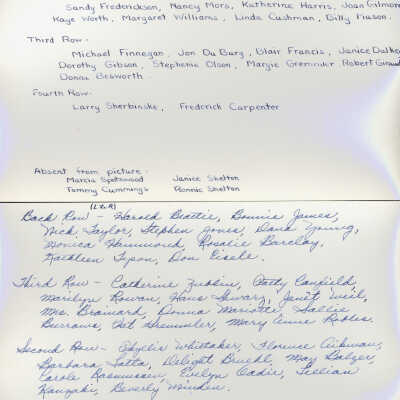 Sandy Frederickson, Nancy Mors, Katherine Harris, Joan Gilmore
Kaye Worth, Margaret Williams, Linda Cushman, Billy
Third Row-
Michael Finnegan, Jon Du Burg, Blair Francis, Janice
Dorothy Gibson, Stephenie Olson, Margie Robert
Donna Bosworth
Fourth Row-
Larry Sherbinske, Frederick Carpenter
Absent from picture-
Marcia Spotswood Janice Shelton
Tommy Cummings Ronnie Shelton
(L to R)
Back Row - Harold Beattie, Bonnie James,
Nick Taylor, Stephen Jones, Dana Young,
Monica Hammond, Rosalie Barclay,
Kathleen Tyson, Don Eisele.
Third Row - Catherine Patty Canfield,
Marilyn Rowan, Hans Janet Weil,
Mrs. Brainard, Donna Mariotte Sallie
Burrows, Pat Mary Anne Robles.
Second Row - Phyllis Whittaker, Florence Aikman,
Barbara Latta, Delight May Balzer,
Carole Rasmussen, Evelyn Eadie, Lillian
Kanzaki, Beverly Minden.